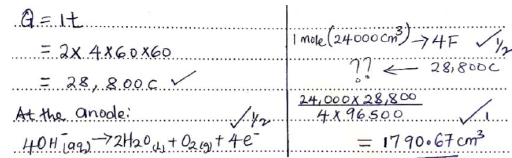 Q = It
= 2 x 4 x 60 x 60
= 28,800 C ✓
At the anode: ✓½
4OH⁻(aq) → 2H2O(l) + O2(g) + 4e⁻
1 mole (24000 cm³) → 4F ✓½
?? ← 28,800C
24,000 x 28,800
4 x 96500 ✓1
= 1790.67 cm³